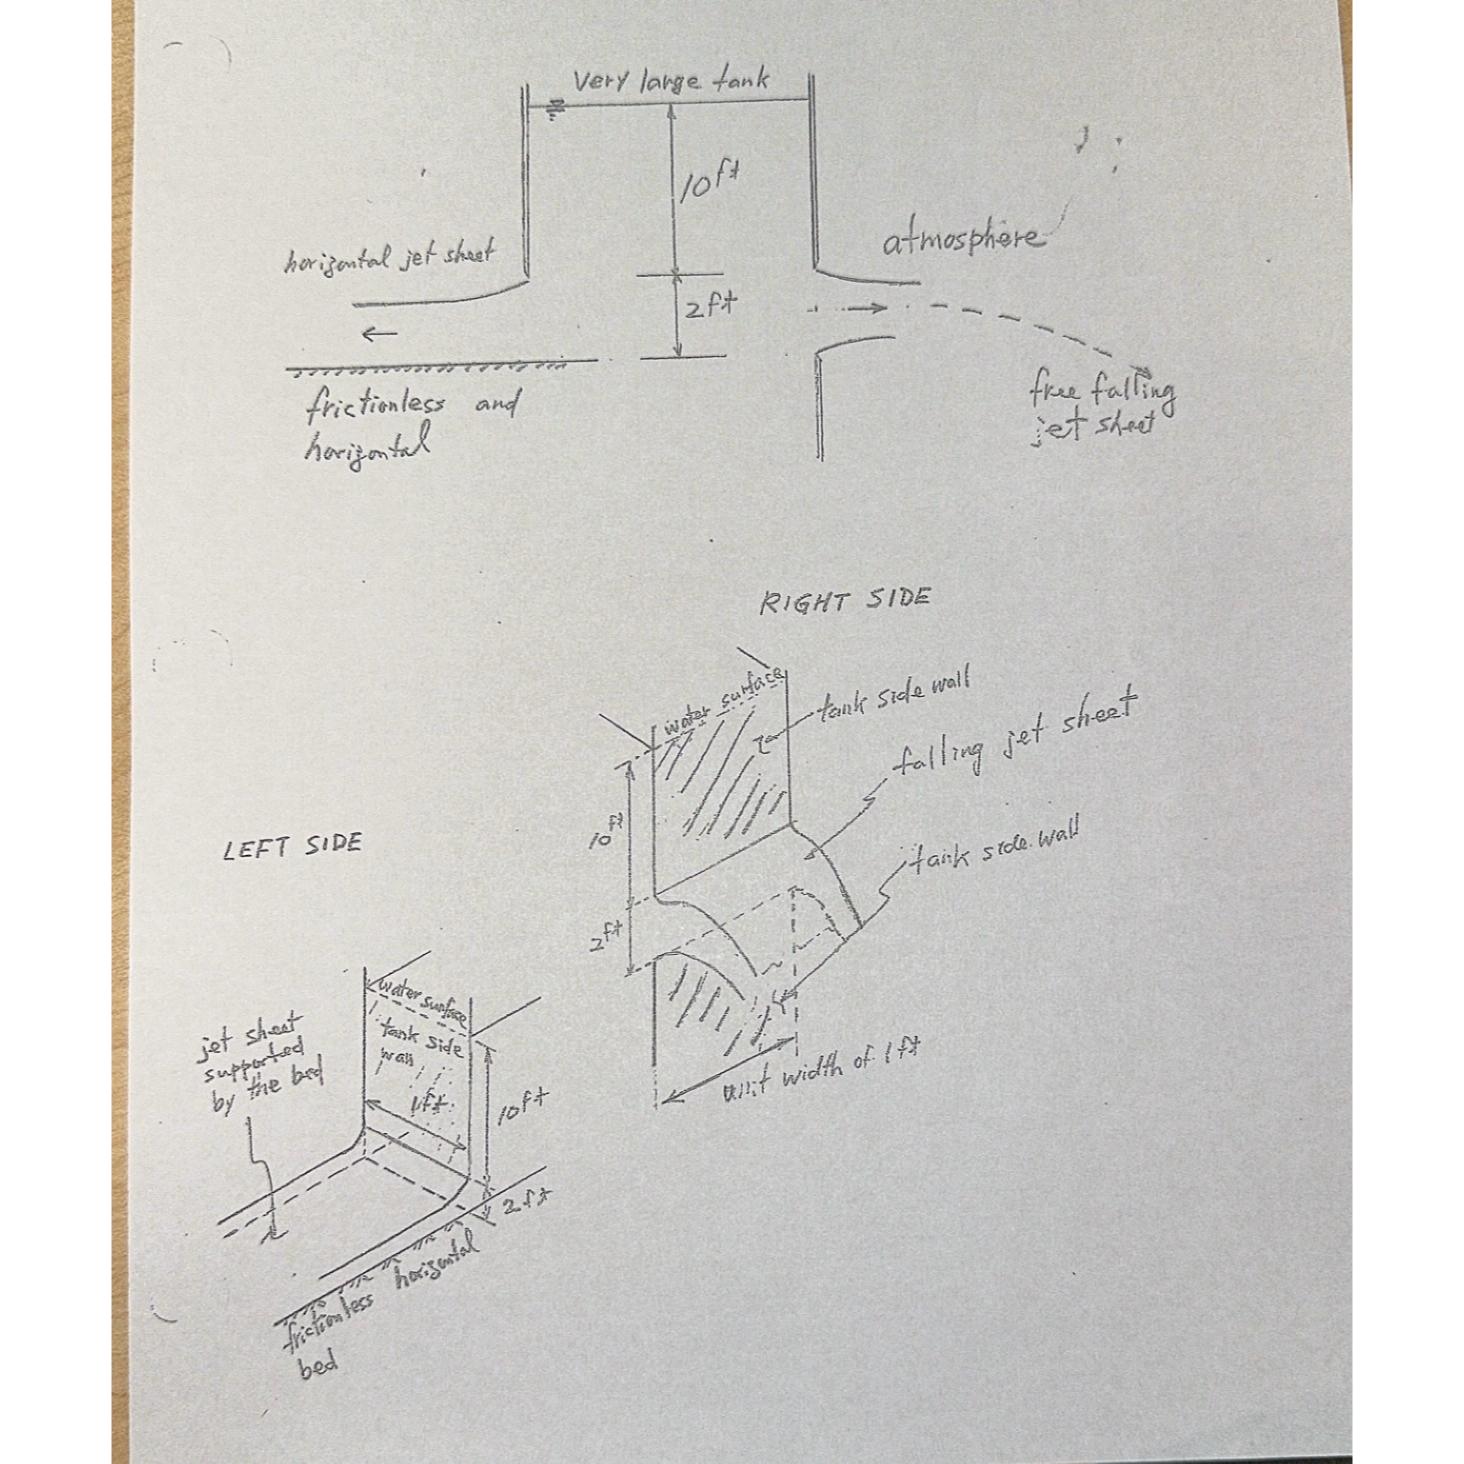 very large tank
10 ft
horizontal jet sheet
atmosphere
2 ft
frictionless and
horizontal
free falling
jet sheet
RIGHT SIDE
water surface
tank side wall
falling jet sheet
10 ft
tank side wall
2 ft
unit width of 1 ft
LEFT SIDE
water surface
jet sheet
supported
by the bed
tank side
wall
1 ft
10 ft
2 ft
frictionless horizontal
bed